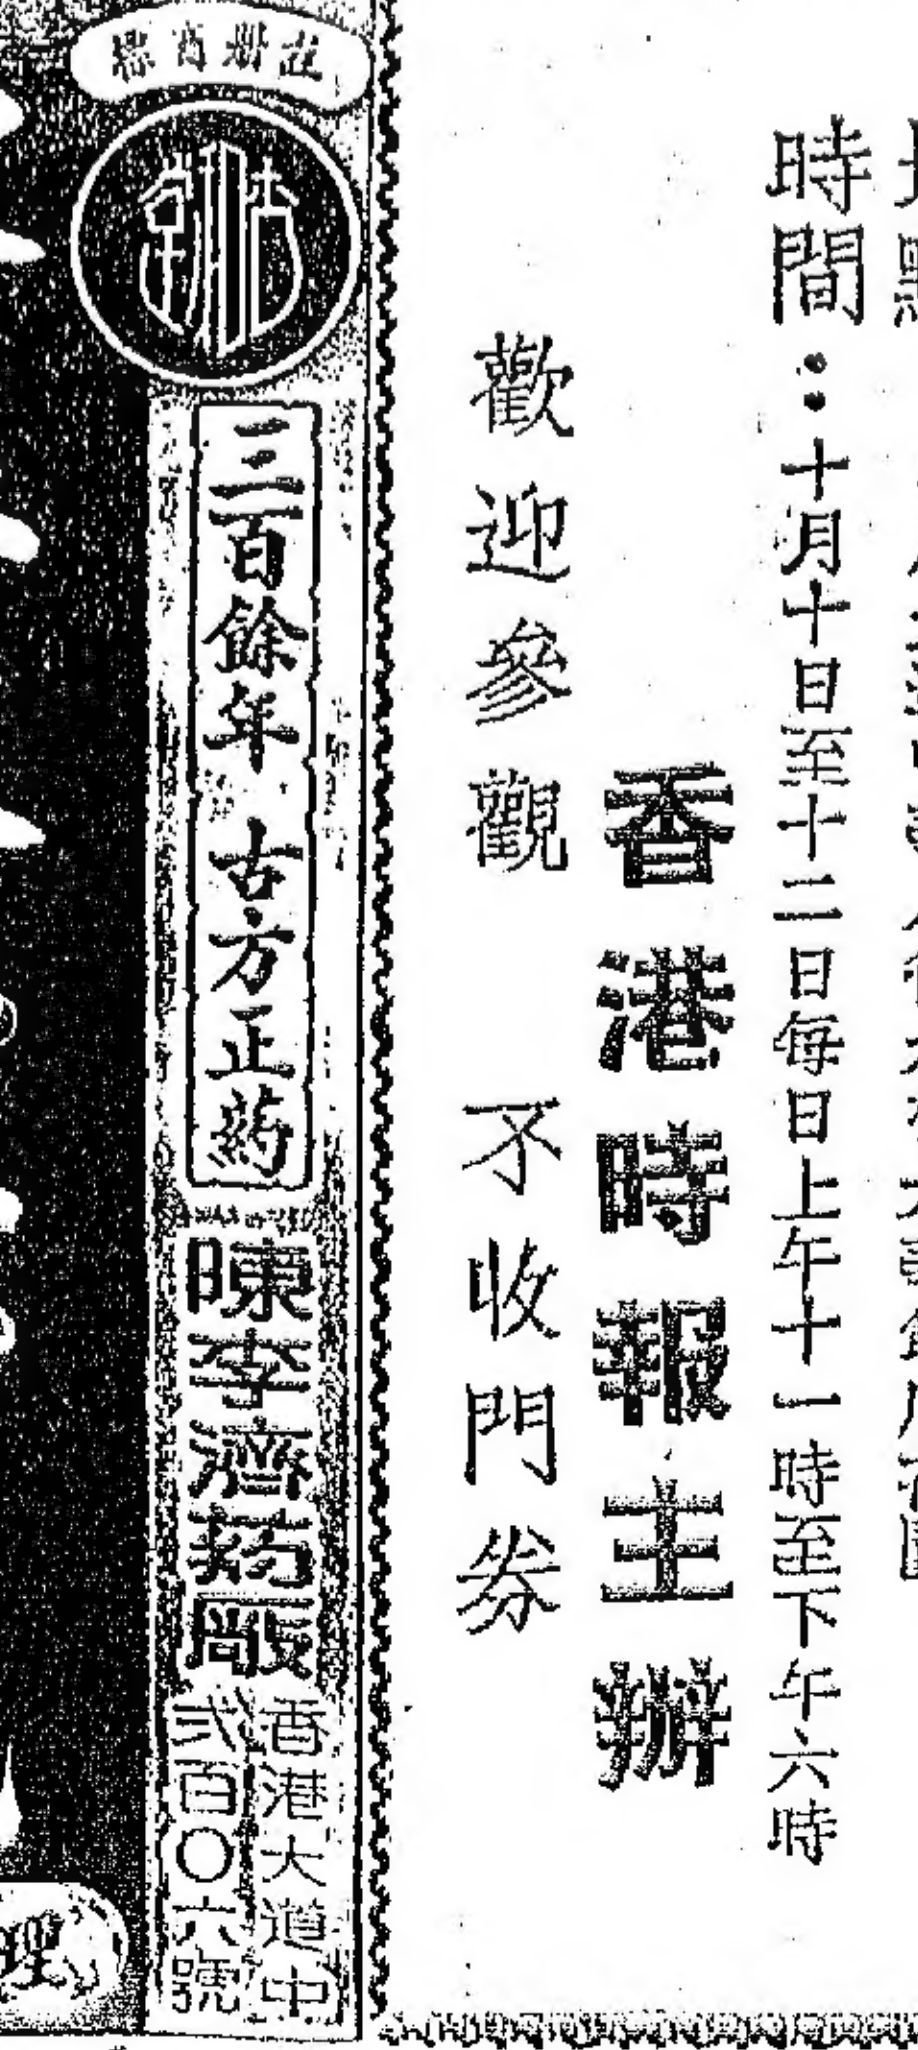 時間：十月十日至十二日每日上午十一時至下午六時
香港時報主辦
歡迎參觀　不收門券
註冊商標
三百餘年　古方正葯
陳李濟葯厰
香港大道中
弍百〇六號
理